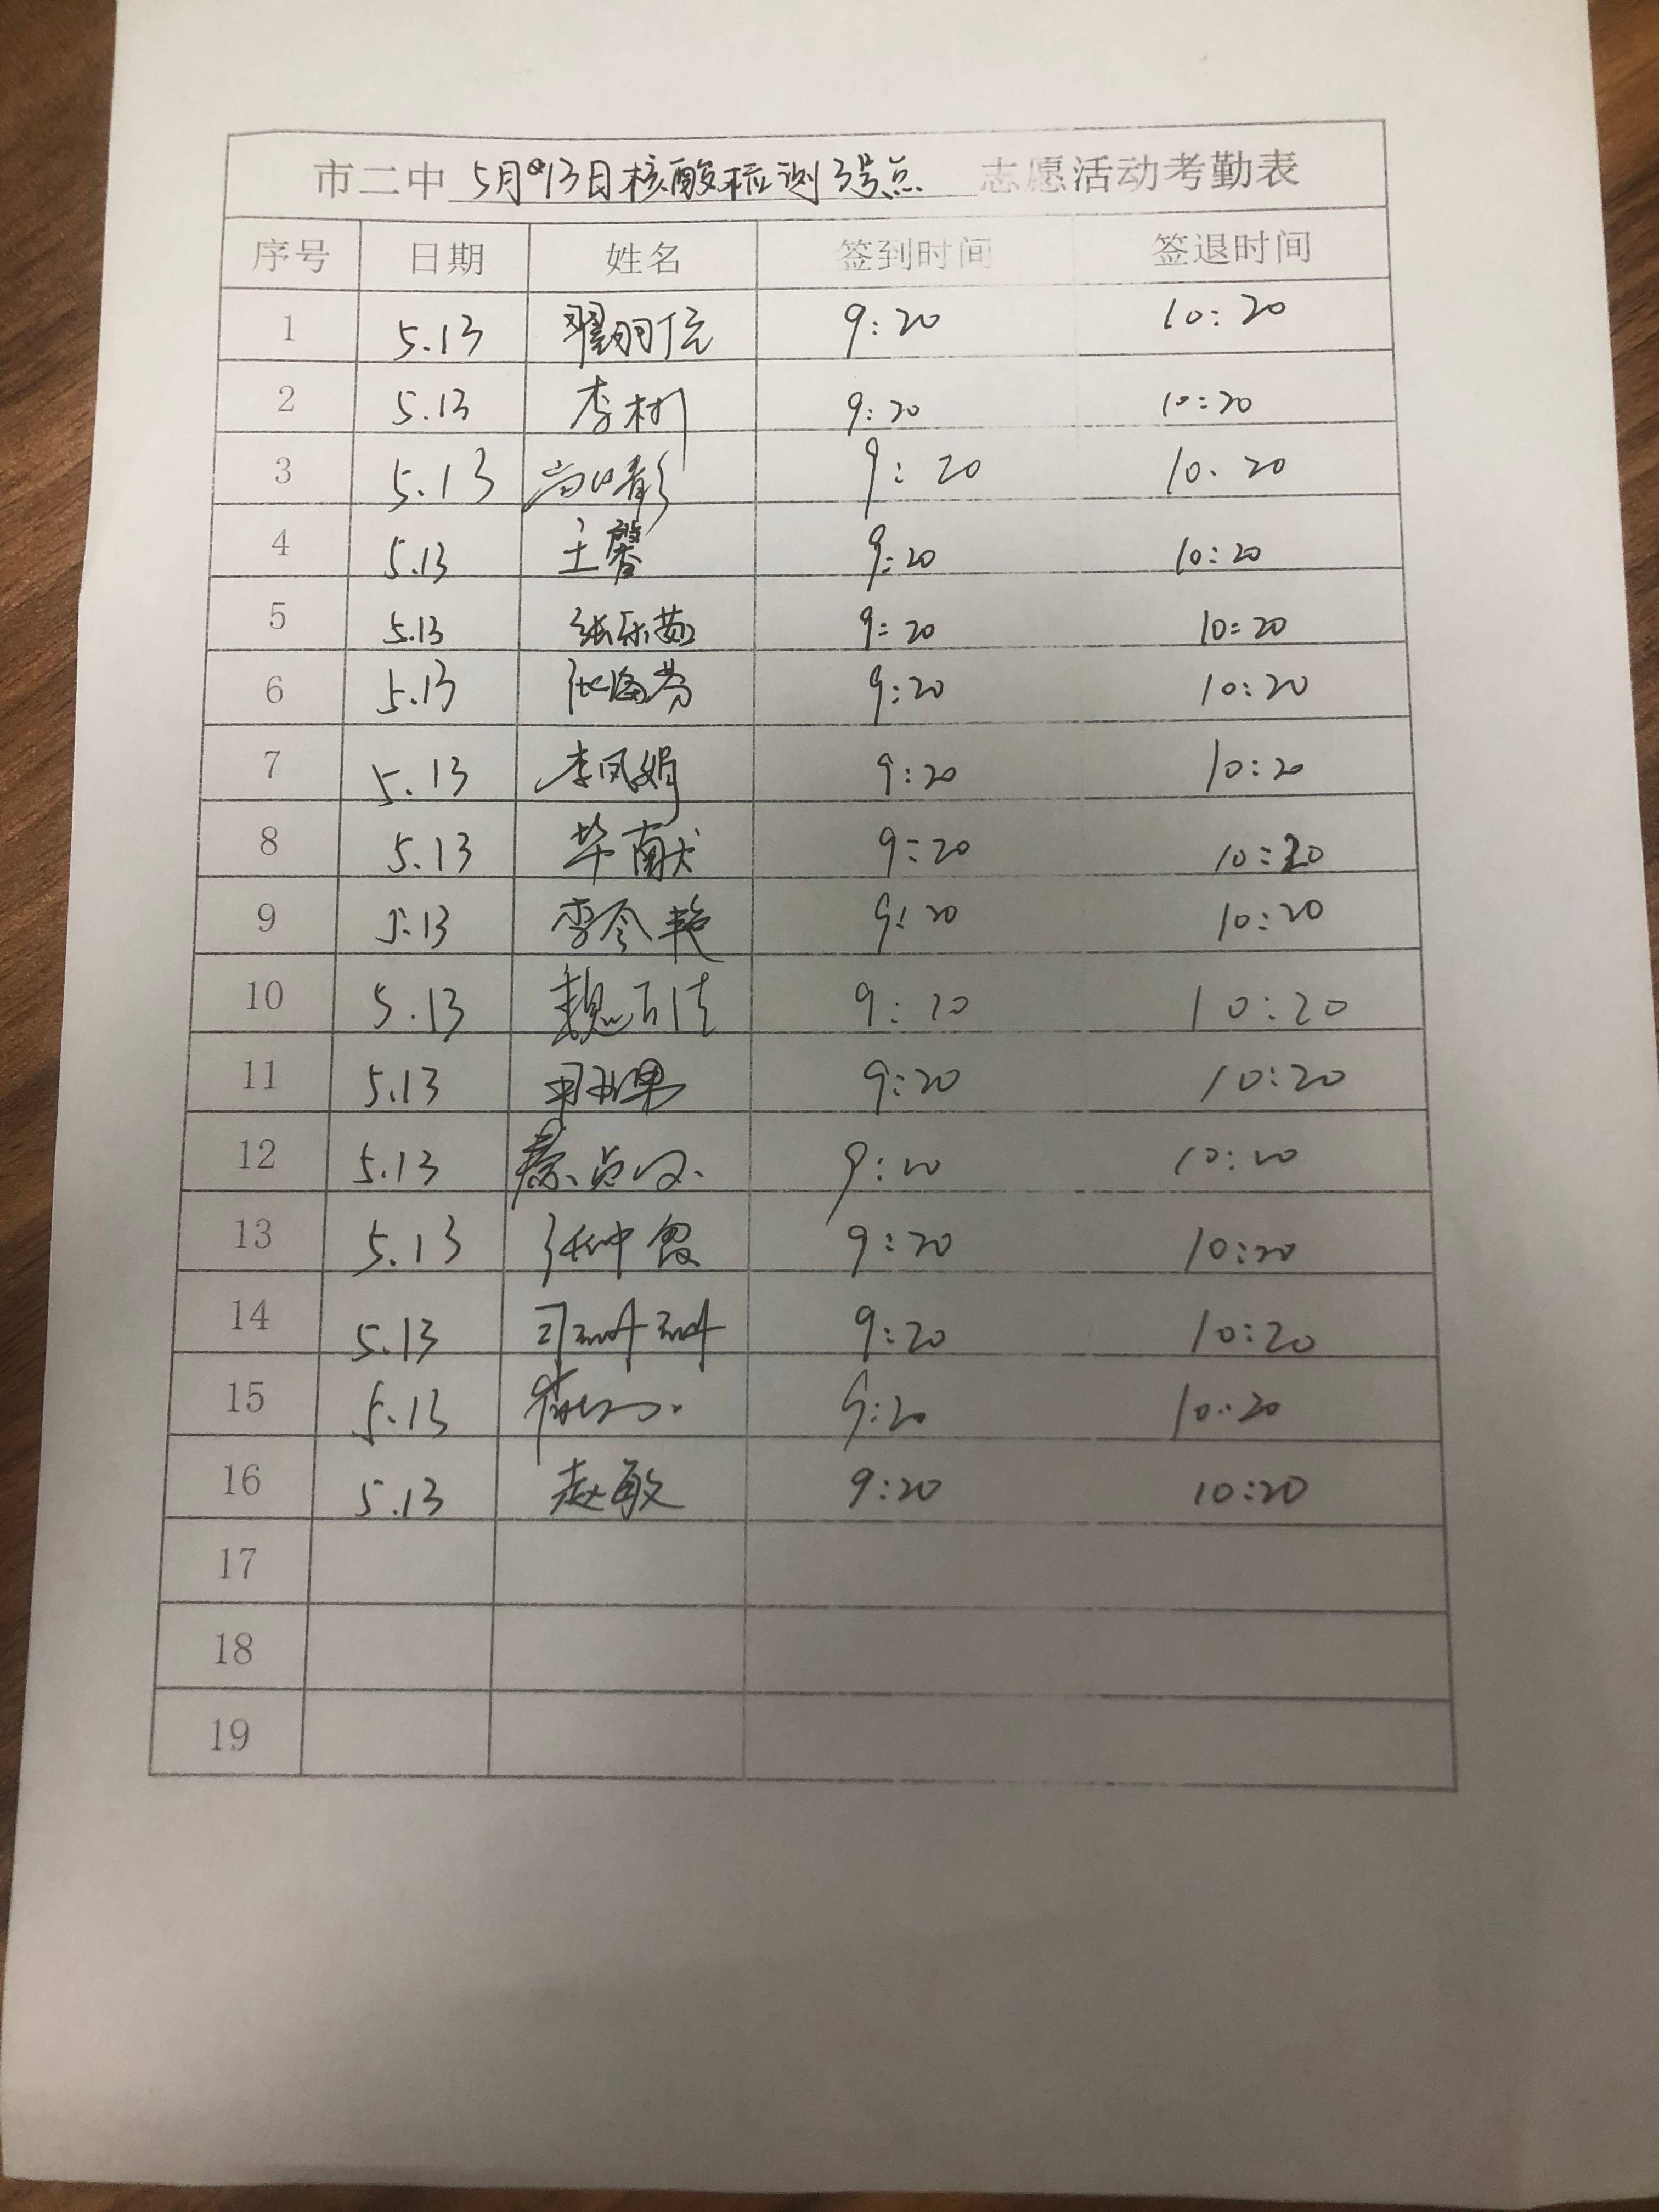 市二中 5月13日核酸检测3号点 志愿活动考勤表
序号 日期 姓名 签到时间 签退时间
1 5.13 9:20 10:20
2 5.13 李树 9:20 10:20
3 5.13 高晴彩 9:20 10:20
4 5.13 王馨 9:20 10:20
5 5.13 张乐茹 9:20 10:20
6 5.13 张海芳 9:20 10:20
7 5.13 李凤娟 9:20 10:20
8 5.13 毕献 9:20 10:20
9 5.13 李令艳 9:20 10:20
10 5.13 9:20 10:20
11 5.13 9:20 10:20
12 5.13 9:20 10:20
13 5.13 9:20 10:20
14 5.13 9:20 10:20
15 5.13 9:20 10:20
16 5.13 赵敏 9:20 10:20
17
18
19